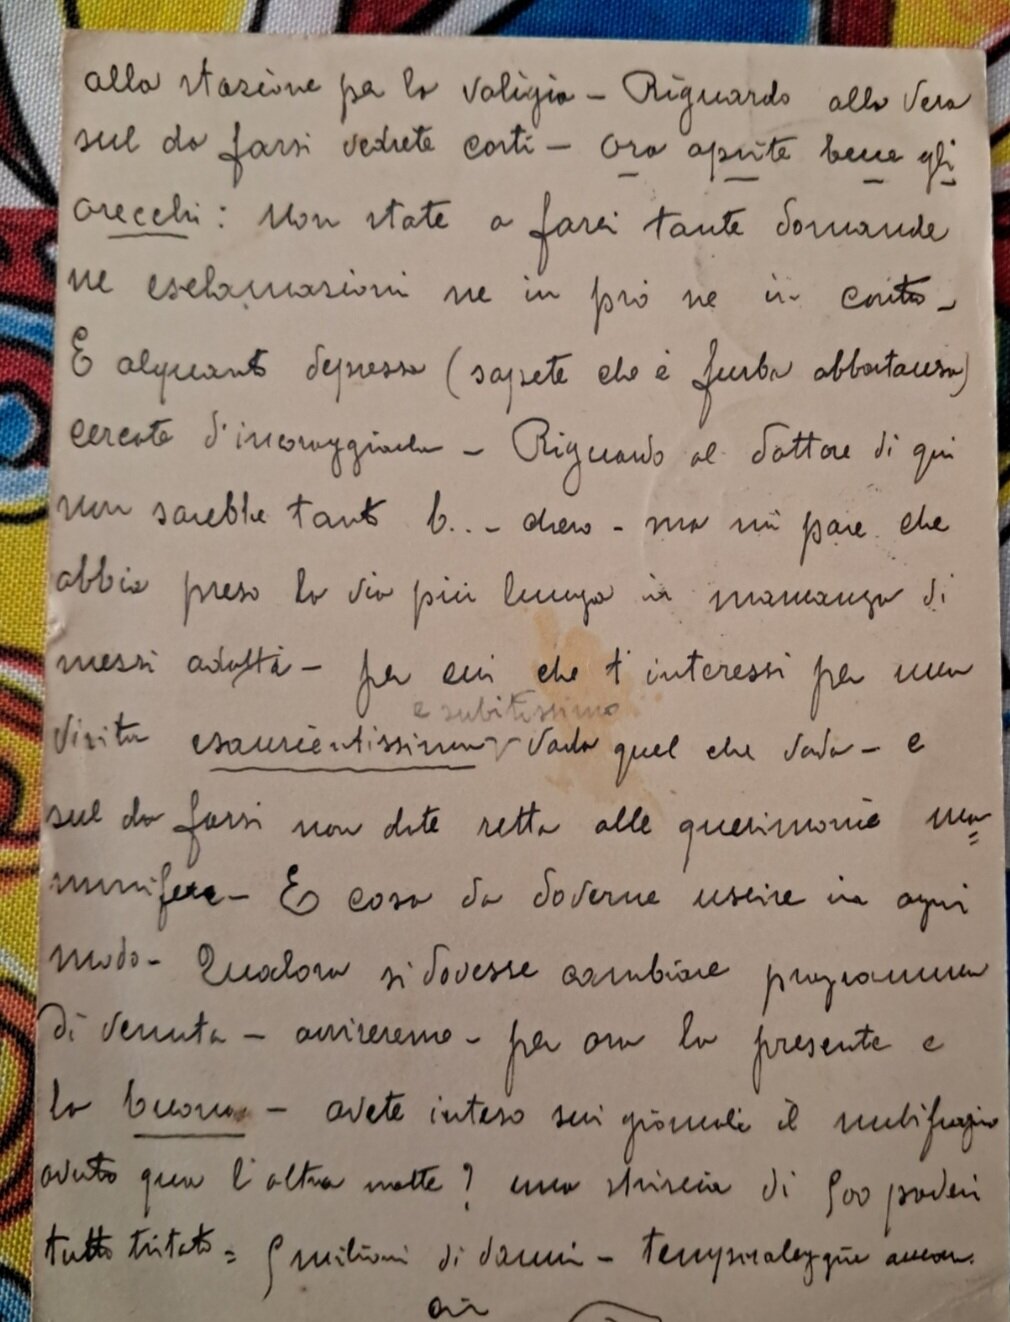 alla stazione per la valigia - Riguardo alla Vera
sul da farsi vedrete costì - Ora aprite bene gli
orecchi: Non state a farci tante domande
ne esclamazioni ne in pro ne in contro -
E alquanto depressa (sapete che è furba abbastanza)
cercate d'incoraggiarla - Riguardo al dottore di qui
non sarebbe tanto b... - ma mi pare che
abbia preso la via più lunga in mancanza di
messi adatti - per cui che t'interessi per una
e subitissimo
visita esaurientissima vada quel che vada - e
sul da farsi non date retta alle querimonie ma
mmifere - E cosa da doverne uscire in ogni
modo - Qualora si dovesse cambiare programma
di venuta - avviseremo - per ora la presente e
la buona - avete inteso sui giornali il nubifragio
avuto qua l'altra notte? una striscia di 500 poderi
tutto tritato = 5 milioni di danni -